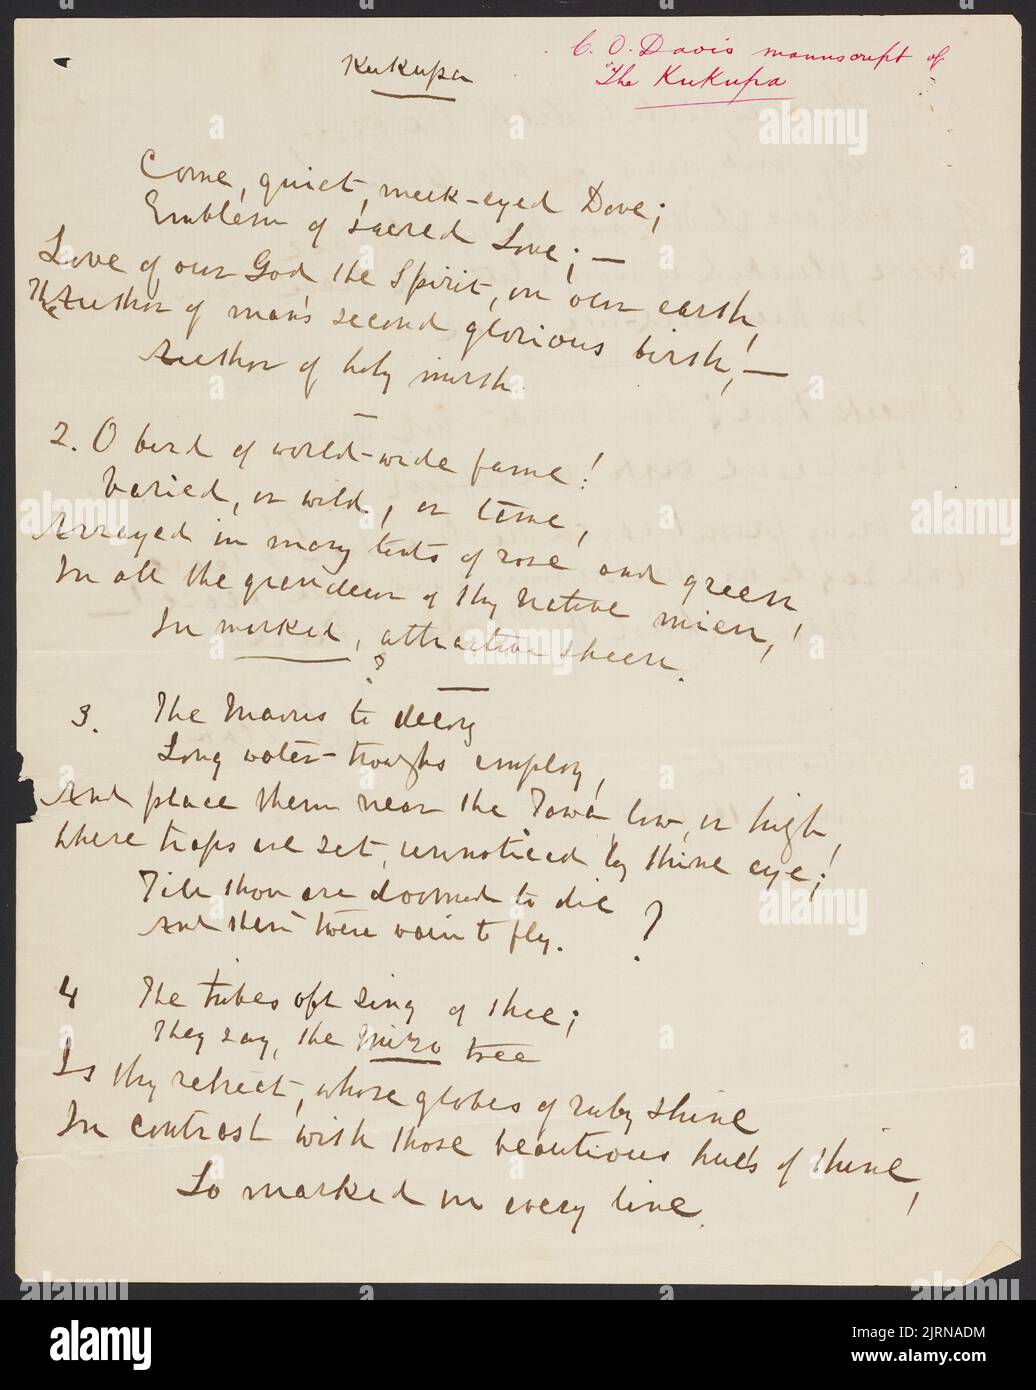 Kukupa
C. O. Davis manuscript of
"The Kukupa
Come, quiet, meek-eyed Dove;
Emblem of sacred Love; —
Love of our God the Spirit, on our earth,
The Author of man's second glorious birth! —
Author of holy mirth.
2. O bird of world-wide fame!
Varied, or wild, or tame,
Arrayed in many tints of rose and green
In all the grandeur of thy native mien,!
In marked, attractive sheen.
?
3. The Maoris to decoy
Long water-troughs employ,
And place them near the Tawa low, or high,
Where traps are set, unnoticed by thine eye;!
Till thou are doomed to die
And then 'twere vain to fly. ?
4 The tribes oft sing of thee;
They say, the Miro tree
Is thy retreat, whose globes of ruby shine
In contrast with those beautious hues of thine,!
So marked in every line.
alamy
alamy
alamy
alamy
alamy
alamy
Image ID: 2JRNADM
www.alamy.com